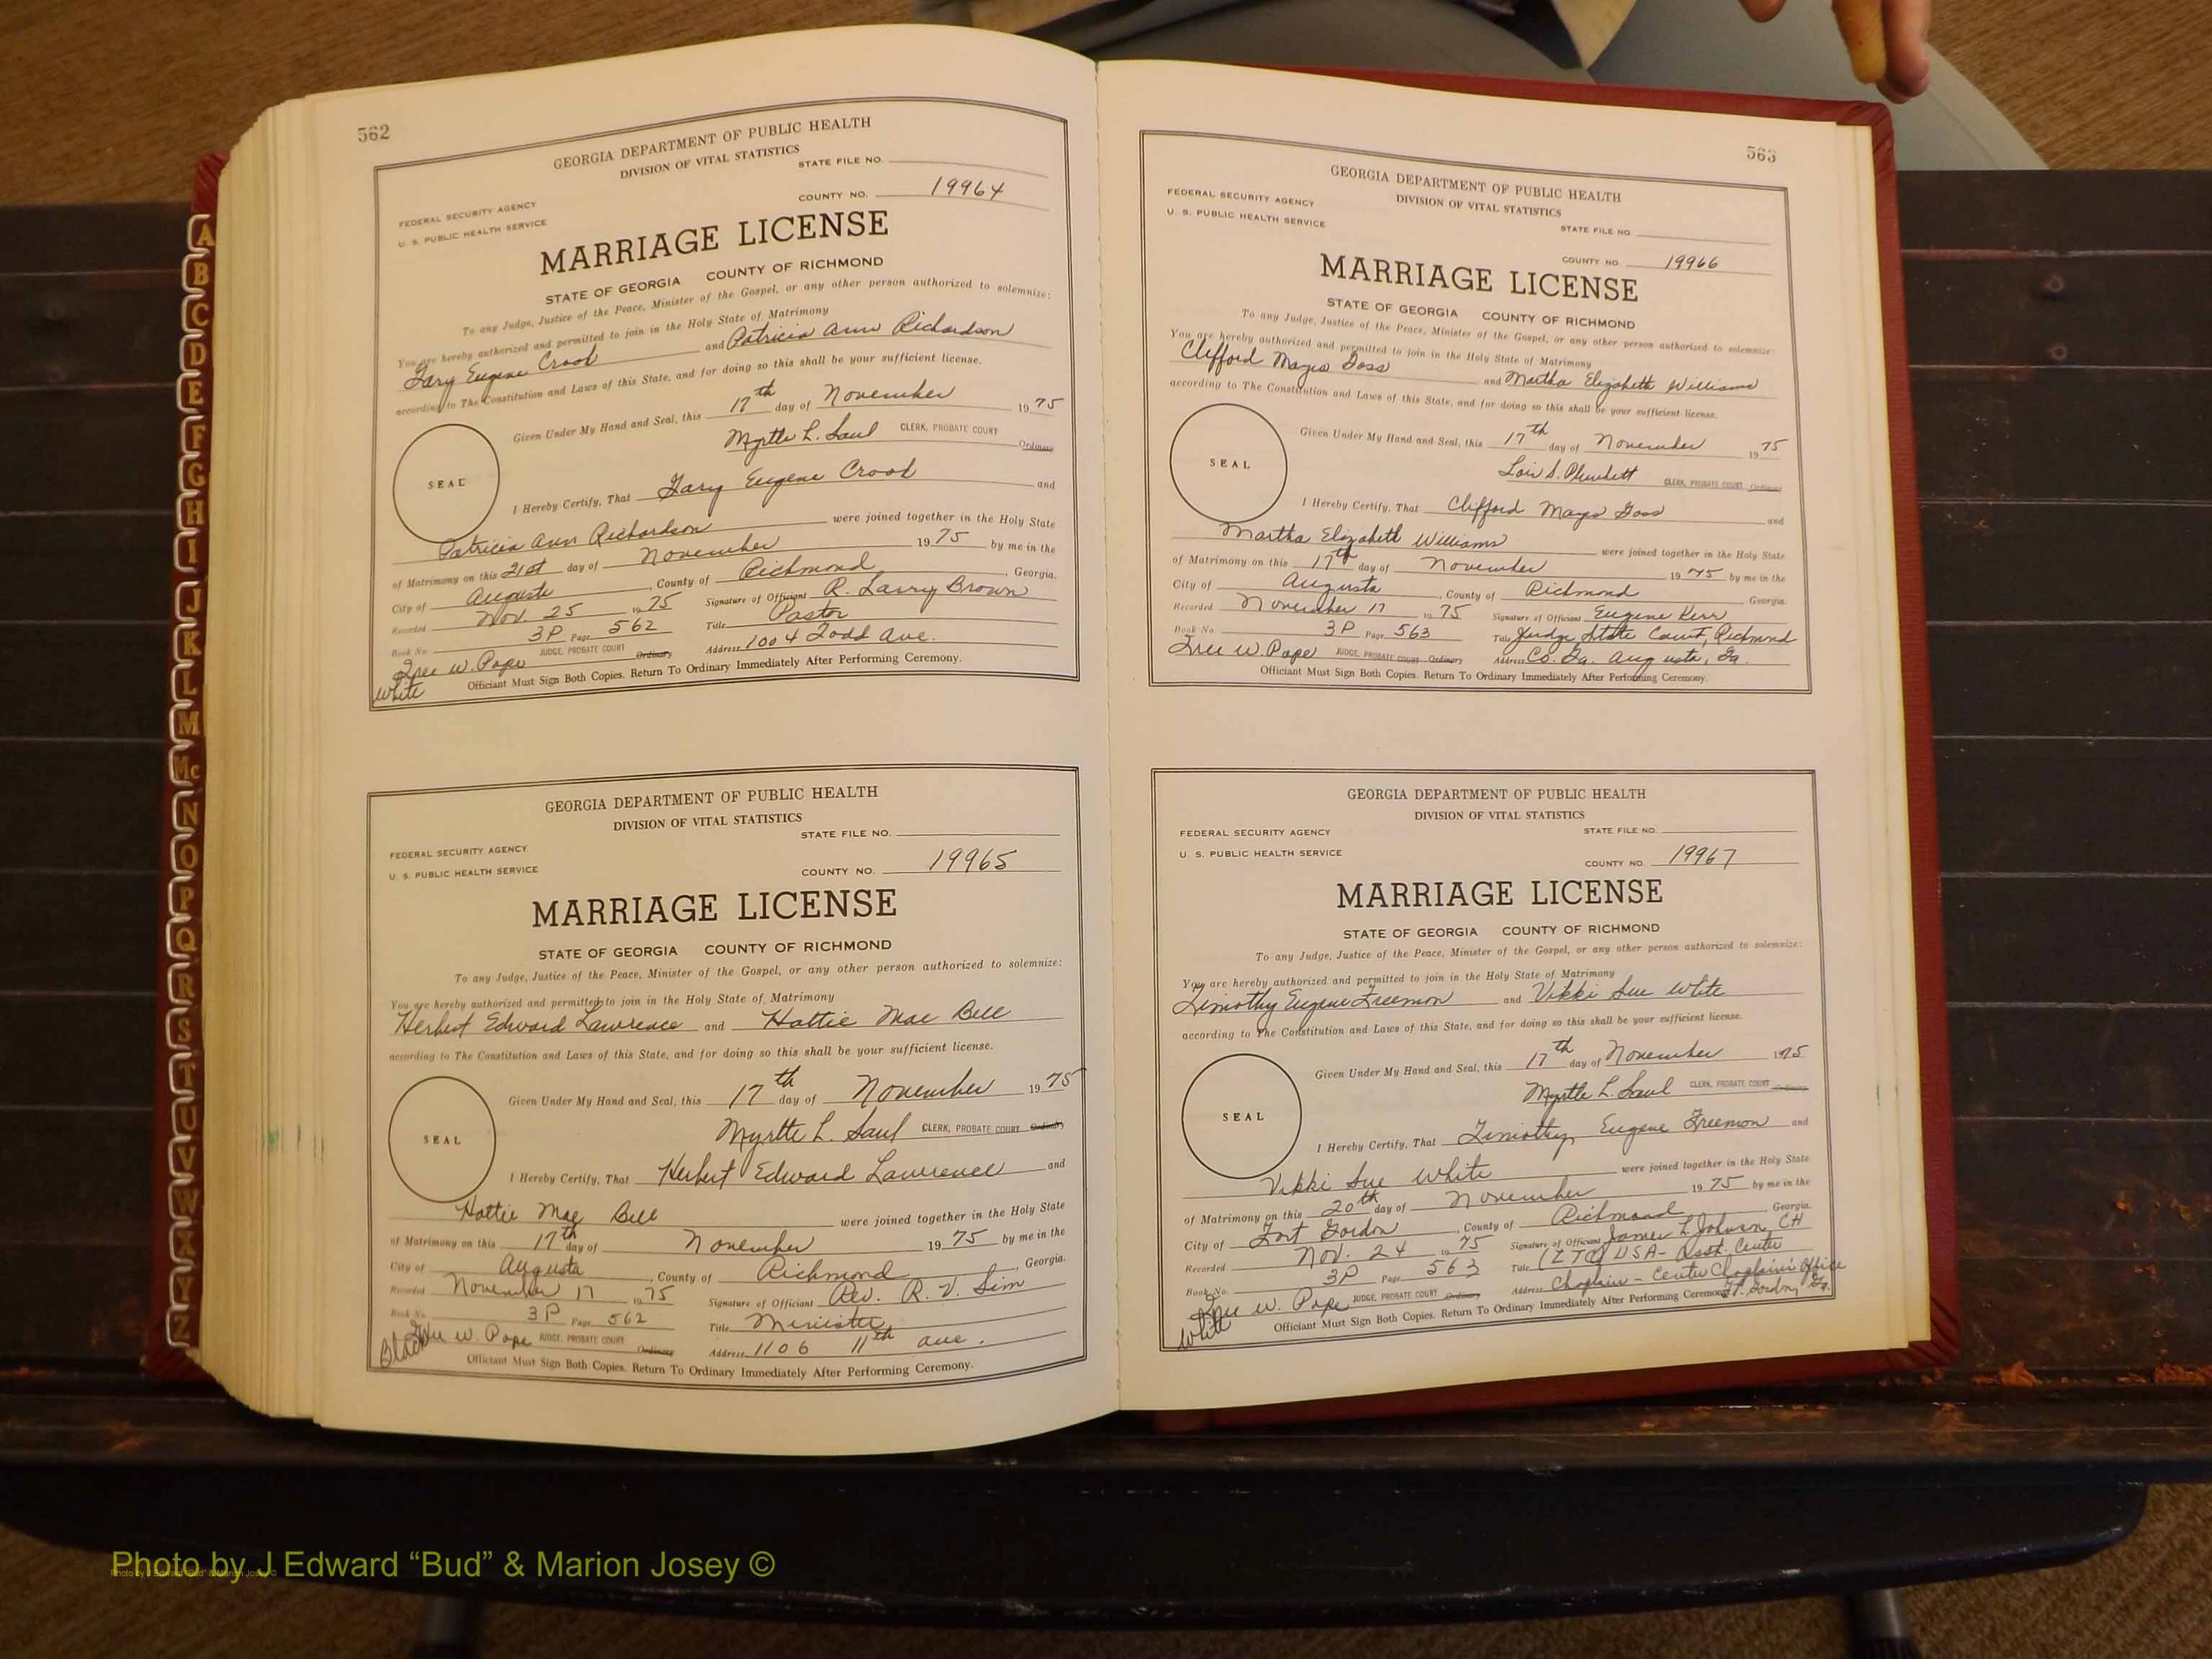 562
GEORGIA DEPARTMENT OF PUBLIC HEALTH
DIVISION OF VITAL STATISTICS
STATE FILE NO.
COUNTY NO. 19964
FEDERAL SECURITY AGENCY
U. S. PUBLIC HEALTH SERVICE
MARRIAGE LICENSE
STATE OF GEORGIA COUNTY OF RICHMOND
To any Judge, Justice of the Peace, Minister of the Gospel, or any other person authorized to solemnize:
You are hereby authorized and permitted to join in the Holy State of Matrimony
Gary Eugene Crook and Patricia Ann Richardson
according to The Constitution and Laws of this State, and for doing so this shall be your sufficient license.
Given Under My Hand and Seal, this 17th day of November 1975
Myrtle L. Saul CLERK, PROBATE COURT Ordinary
SEAL
I Hereby Certify, That Gary Eugene Crook and
Patricia Ann Richardson were joined together in the Holy State
of Matrimony on this 21st day of November 1975 by me in the
City of Augusta, County of Richmond, Georgia.
Recorded Nov. 25 1975 Signature of Officiant R. Larry Brown
Book No. 3P Page 562 Title Pastor
W. Pope JUDGE, PROBATE COURT Ordinary Address 1004 Todd Ave.
White Officiant Must Sign Both Copies. Return To Ordinary Immediately After Performing Ceremony.
GEORGIA DEPARTMENT OF PUBLIC HEALTH
DIVISION OF VITAL STATISTICS
STATE FILE NO.
FEDERAL SECURITY AGENCY
U. S. PUBLIC HEALTH SERVICE
COUNTY NO. 19965
MARRIAGE LICENSE
STATE OF GEORGIA COUNTY OF RICHMOND
To any Judge, Justice of the Peace, Minister of the Gospel, or any other person authorized to solemnize:
You are hereby authorized and permitted to join in the Holy State of Matrimony
Herbert Edward Lawrence and Hattie Mae Bell
according to The Constitution and Laws of this State, and for doing so this shall be your sufficient license.
Given Under My Hand and Seal, this 17th day of November 1975
Myrtle L. Saul CLERK, PROBATE COURT Ordinary
SEAL
I Hereby Certify, That Herbert Edward Lawrence and
Hattie Mae Bell were joined together in the Holy State
of Matrimony on this 17th day of November 1975 by me in the
City of Augusta, County of Richmond, Georgia.
Recorded November 17 1975 Signature of Officiant Rev. R. V. Sim
Book No. 3P Page 562 Title Minister
W. Pope JUDGE, PROBATE COURT Ordinary Address 1106 11th ave.
Black Officiant Must Sign Both Copies. Return To Ordinary Immediately After Performing Ceremony.
563
GEORGIA DEPARTMENT OF PUBLIC HEALTH
DIVISION OF VITAL STATISTICS
FEDERAL SECURITY AGENCY
U. S. PUBLIC HEALTH SERVICE
STATE FILE NO.
COUNTY NO. 19966
MARRIAGE LICENSE
STATE OF GEORGIA COUNTY OF RICHMOND
To any Judge, Justice of the Peace, Minister of the Gospel, or any other person authorized to solemnize:
You are hereby authorized and permitted to join in the Holy State of Matrimony
Clifford Mays Goss and Martha Elizabeth Williams
according to The Constitution and Laws of this State, and for doing so this shall be your sufficient license.
Given Under My Hand and Seal, this 17th day of November 1975
Lois S. Plunkett CLERK, PROBATE COURT Ordinary
SEAL
I Hereby Certify, That Clifford Mays Goss and
Martha Elizabeth Williams were joined together in the Holy State
of Matrimony on this 17th day of November 1975 by me in the
City of Augusta, County of Richmond Georgia.
Recorded November 17 1975 Signature of Officiant Eugene Kerr
Book No. 3P Page 563 Title Judge State Court, Richmond
W. Pope JUDGE, PROBATE COURT Ordinary Address Co. Ga. Augusta, Ga.
Officiant Must Sign Both Copies. Return To Ordinary Immediately After Performing Ceremony.
GEORGIA DEPARTMENT OF PUBLIC HEALTH
DIVISION OF VITAL STATISTICS
FEDERAL SECURITY AGENCY
STATE FILE NO.
U. S. PUBLIC HEALTH SERVICE
COUNTY NO. 19967
MARRIAGE LICENSE
STATE OF GEORGIA COUNTY OF RICHMOND
To any Judge, Justice of the Peace, Minister of the Gospel, or any other person authorized to solemnize:
You are hereby authorized and permitted to join in the Holy State of Matrimony
Timothy Eugene Freemon and Vikki Sue White
according to The Constitution and Laws of this State, and for doing so this shall be your sufficient license.
Given Under My Hand and Seal, this 17th day of November 1975
Myrtle L. Saul CLERK, PROBATE COURT Ordinary
SEAL
I Hereby Certify, That Timothy Eugene Freemon and
Vikki Sue White were joined together in the Holy State
of Matrimony on this 20th day of November 1975 by me in the
City of Fort Gordon, County of Richmond, Georgia.
Recorded Nov. 24 1975 Signature of Officiant James L Johnson, CH
Book No. 3P Page 563 Title (LTC) USA- Asst. Center
W. Pope JUDGE, PROBATE COURT Ordinary Address Chaplain - Center Chaplain's Office
Ft. Gordon, Ga.
White Officiant Must Sign Both Copies. Return To Ordinary Immediately After Performing Ceremony.
A
B
C
D
E
F
G
H
I
J
K
L
M
Mc
N
O
P
Q
R
S
T
U
V
W
X
Y
Z
Photo by J Edward “Bud” & Marion Josey ©
Photo by J Edward “Bud” & Marion Josey ©